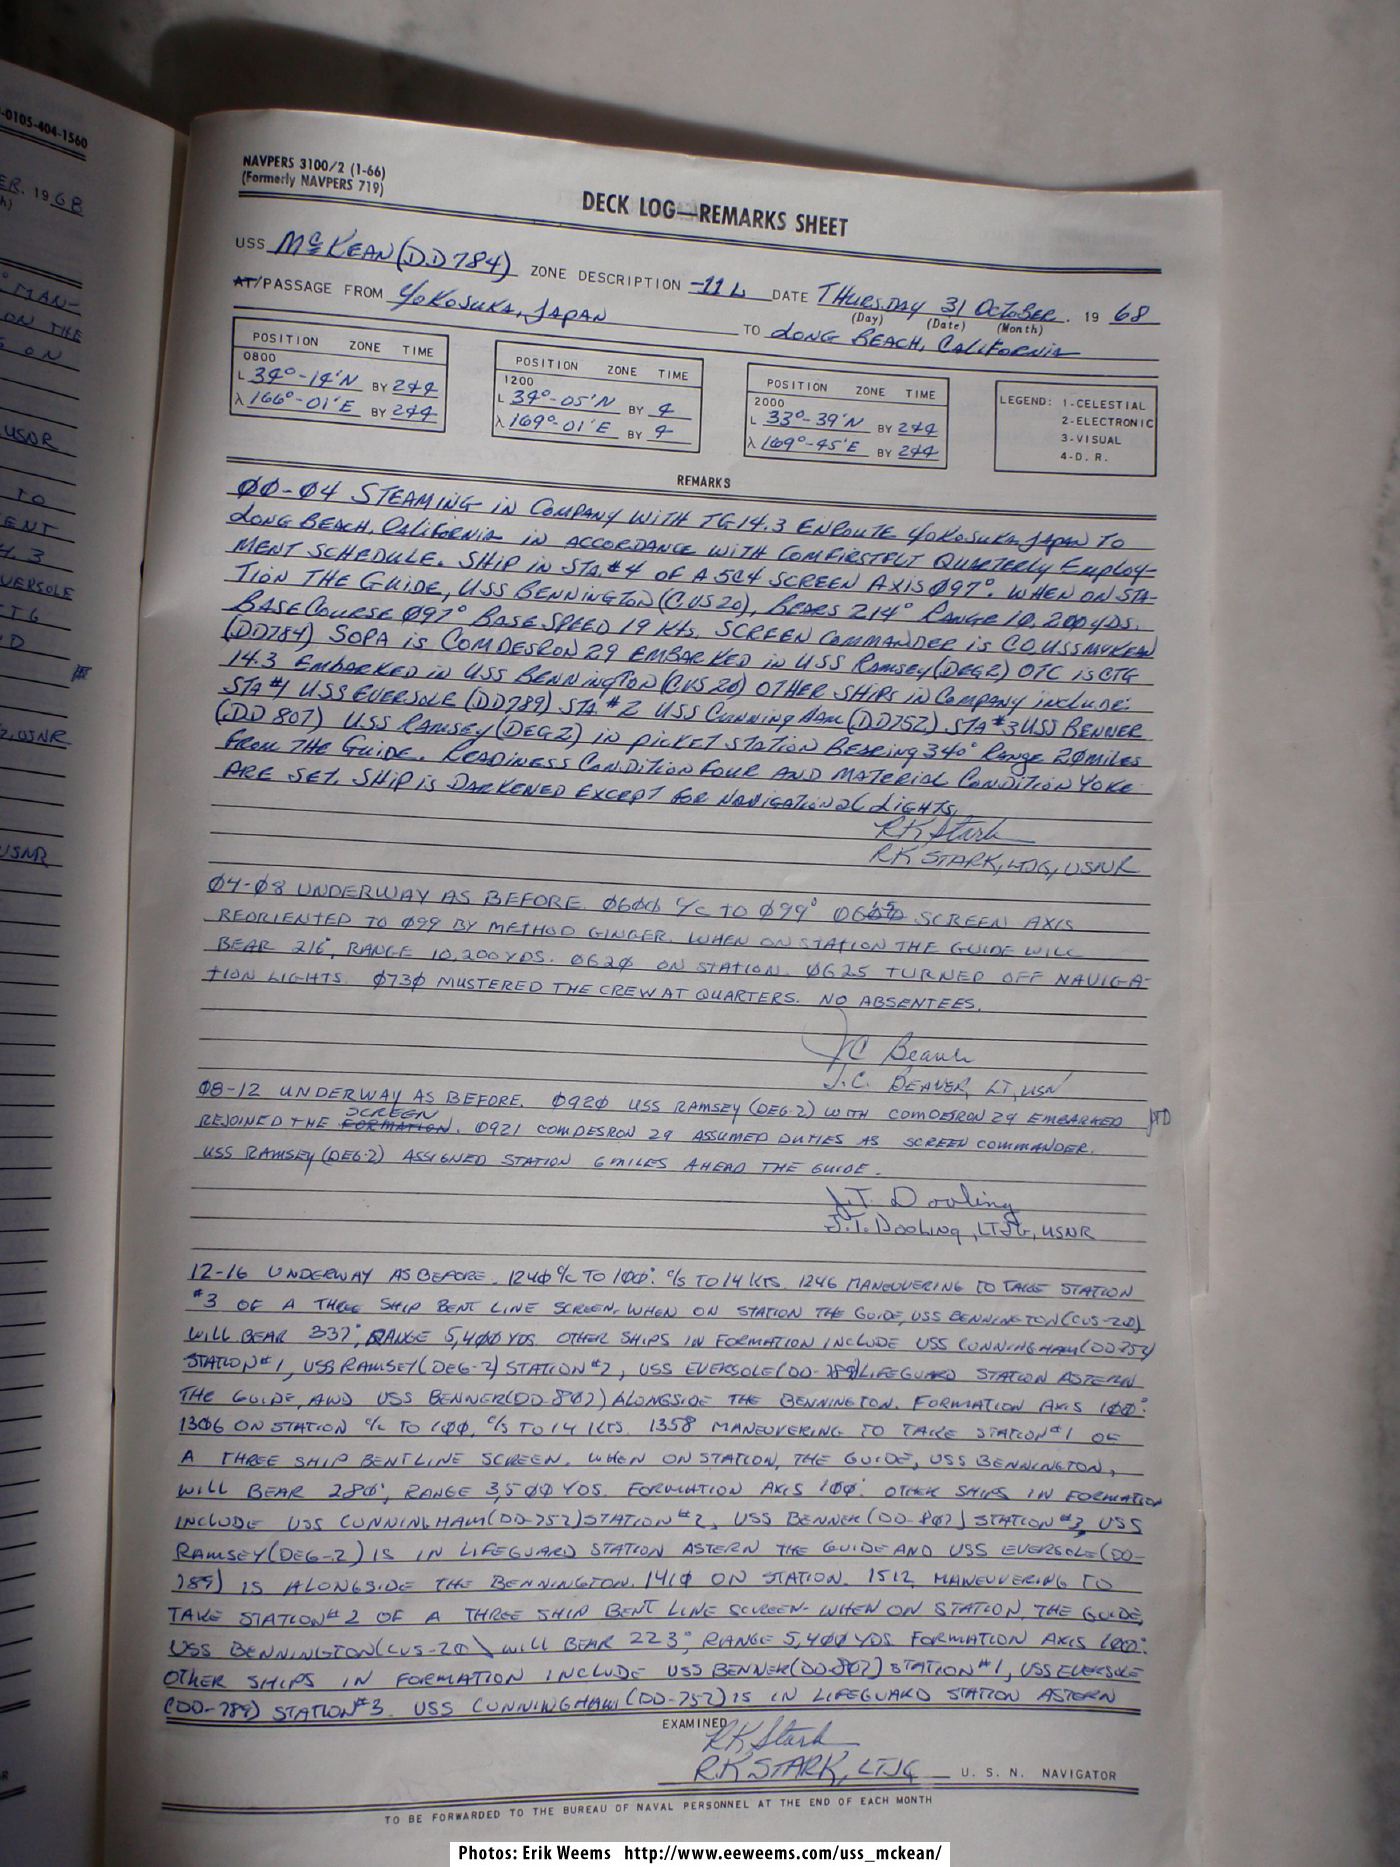 -0105-404-1560
ER. 19 68
MAN-
ON THE
ON
USNR
TO
ENT
4.3
VERSOLE
CTG
D
, USNR
USNR
NAVPERS 3100/2 (1-66)
(Formerly NAVPERS 719)
DECK LOG—REMARKS SHEET
USS McKEAN (DD784) ZONE DESCRIPTION -11 L DATE THURSDAY 31 OCTOBER . 19 68
(Day) (Date) (Month)
AT/PASSAGE FROM YOKOSUKA, JAPAN TO LONG BEACH, CALIFORNIA
POSITION ZONE TIME
0800
L 34°-14'N BY 2+4
λ 166°-01'E BY 2+4
POSITION ZONE TIME
1200
L 34°-05'N BY 4
λ 169°-01'E BY 4
POSITION ZONE TIME
2000
L 33°-39'N BY 2+4
λ 169°-45'E BY 2+4
LEGEND: 1-CELESTIAL
2-ELECTRONIC
3-VISUAL
4-D. R.
REMARKS
00-04 STEAMING IN COMPANY WITH TG 14.3 ENROUTE YOKOSUKA, JAPAN TO
LONG BEACH, CALIFORNIA IN ACCORDANCE WITH COMFIRSTFLT QUARTERLY EMPLOY-
MENT SCHEDULE. SHIP IN STA. #4 OF A 5C4 SCREEN AXIS 097°. WHEN ON STA-
TION THE GUIDE, USS BENNINGTON (CVS 20), BEARS 214° RANGE 10,200 YDS.
BASE COURSE 097° BASE SPEED 19 KTS. SCREEN COMMANDER IS C.O. USS MCKEAN
(DD784) SOPA IS COMDESRON 29 EMBARKED IN USS RAMSEY (DEG2) OTC IS CTG
14.3 EMBARKED IN USS BENNINGTON (CVS 20) OTHER SHIPS IN COMPANY INCLUDE:
STA #1 USS EVERSOLE (DD789) STA. #2 USS CUNNINGHAM (DD752) STA #3 USS BENNER
(DD 807) USS RAMSEY (DEG2) IN PICKET STATION BEARING 340° RANGE 20 MILES
FROM THE GUIDE. READINESS CONDITION FOUR AND MATERIAL CONDITION YOKE
ARE SET. SHIP IS DARKENED EXCEPT FOR NAVIGATIONAL LIGHTS.
RK Stark
RK STARK, LTJG, USNR
04-08 UNDERWAY AS BEFORE. 0600 C/C TO 099° SCREEN AXIS
REORIENTED TO 099 BY METHOD GINGER. WHEN ON STATION THE GUIDE WILL
BEAR 216°, RANGE 10,200 YDS. 0620 ON STATION. 0625 TURNED OFF NAVIGA-
TION LIGHTS. 0730 MUSTERED THE CREW AT QUARTERS. NO ABSENTEES.
JC Beaver
J.C. BEAVER, LT, USN
08-12 UNDERWAY AS BEFORE. 0920 USS RAMSEY (DEG-2) WITH COMDESRON 29 EMBARKED JTD
REJOINED THE FORMATION SCREEN. 0921 COMDESRON 29 ASSUMED DUTIES AS SCREEN COMMANDER.
USS RAMSEY (DEG-2) ASSIGNED STATION 6 MILES AHEAD THE GUIDE.
J.T. Dooling
J.T. Dooling, LTJG, USNR
12-16 UNDERWAY AS BEFORE. 1240 C/C TO 100°. C/S TO 14 KTS. 1246 MANEUVERING TO TAKE STATION
#3 OF A THREE SHIP BENT LINE SCREEN. WHEN ON STATION THE GUIDE, USS BENNINGTON (CVS-20)
WILL BEAR 337°, RANGE 5,400 YDS. OTHER SHIPS IN FORMATION INCLUDE USS CUNNINGHAM (DD-752)
STATION #1, USS RAMSEY (DEG-2) STATION #2, USS EVERSOLE (DD-789) LIFEGUARD STATION ASTERN
THE GUIDE, AND USS BENNER (DD-807) ALONGSIDE THE BENNINGTON. FORMATION AXIS 100°.
1306 ON STATION C/C TO 100, C/S TO 14 KTS. 1358 MANEUVERING TO TAKE STATION #1 OF
A THREE SHIP BENTLINE SCREEN. WHEN ON STATION, THE GUIDE, USS BENNINGTON,
WILL BEAR 280°, RANGE 3,500 YDS. FORMATION AXIS 100°. OTHER SHIPS IN FORMATION
INCLUDE USS CUNNINGHAM (DD-752) STATION #2, USS BENNER (DD-807) STATION #3, USS
RAMSEY (DEG-2) IS IN LIFEGUARD STATION ASTERN THE GUIDE AND USS EVERSOLE (DD-
789) IS ALONGSIDE THE BENNINGTON. 1410 ON STATION. 1512 MANEUVERING TO
TAKE STATION #2 OF A THREE SHIP BENT LINE SCREEN. WHEN ON STATION, THE GUIDE,
USS BENNINGTON (CVS-20) WILL BEAR 223°, RANGE 5,400 YDS FORMATION AXIS 100°.
OTHER SHIPS IN FORMATION INCLUDE USS BENNER (DD-807) STATION #1, USS EVERSOLE
(DD-789) STATION #3. USS CUNNINGHAM (DD-752) IS IN LIFEGUARD STATION ASTERN
EXAMINED
RK Stark
R.K STARK, LTJG U. S. N. NAVIGATOR
TO BE FORWARDED TO THE BUREAU OF NAVAL PERSONNEL AT THE END OF EACH MONTH
Photos: Erik Weems http://www.eeweems.com/uss_mckean/